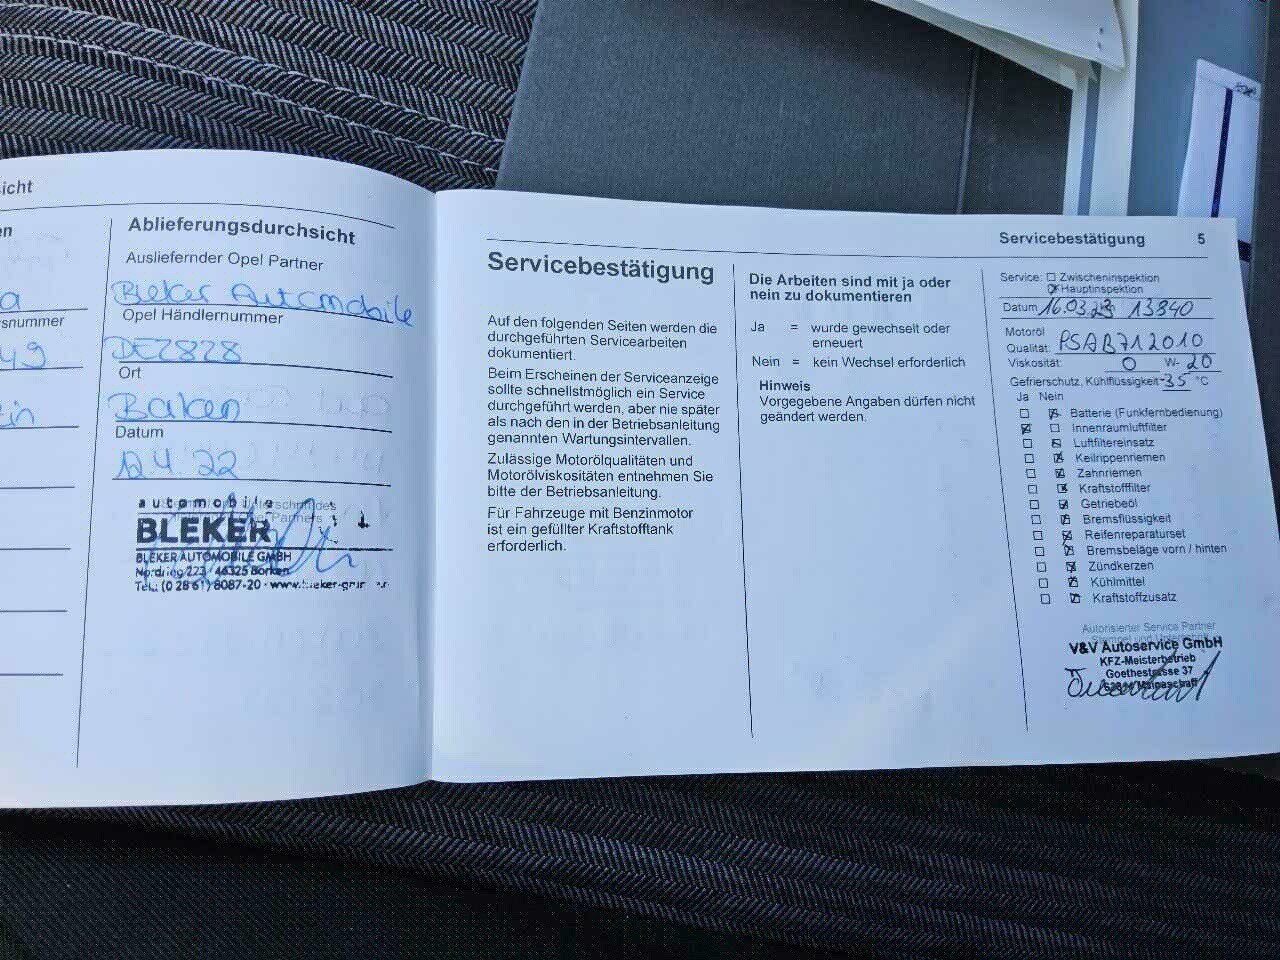 icht
en
a
rsnummer
49
ein
Ablieferungsdurchsicht
Ausliefernder Opel Partner
Bleker Automobile
Opel Händlernummer
DEZ828
Ort
Borken
Datum
12 4 22
automobile
BLEKER
BLEKER AUTOMOBILE GMBH
Nordring 223 / 46325 Borken
Tel.: (0 28 61) 8087-20
Servicebestätigung 5
Servicebestätigung
Auf den folgenden Seiten werden die
durchgeführten Servicearbeiten
dokumentiert.
Beim Erscheinen der Serviceanzeige
sollte schnellstmöglich ein Service
durchgeführt werden, aber nie später
als nach den in der Betriebsanleitung
genannten Wartungsintervallen.
Zulässige Motorölqualitäten und
Motorölviskositäten entnehmen Sie
bitte der Betriebsanleitung.
Für Fahrzeuge mit Benzinmotor
ist ein gefüllter Kraftstofftank
erforderlich.
Die Arbeiten sind mit ja oder
nein zu dokumentieren
Ja = wurde gewechselt oder
erneuert
Nein = kein Wechsel erforderlich
Hinweis
Vorgegebene Angaben dürfen nicht
geändert werden.
Service: Zwischeninspektion
Hauptinspektion
Datum 16.03.23 13840
Motoröl
Qualität: PSAB712010
Viskosität: 0 W- 20
Gefrierschutz, Kühlflüssigkeit -35 °C
Ja Nein
Batterie (Funkfernbedienung)
Innenraumluftfilter
Luftfiltereinsatz
Keilrippenriemen
Zahnriemen
Kraftstofffilter
Getriebeöl
Bremsflüssigkeit
Reifenreparaturset
Bremsbeläge vorn / hinten
Zündkerzen
Kühlmittel
Kraftstoffzusatz
Autorisierter Service Partner
V&V Autoservice GmbH
KFZ-Meisterbetrieb
Goethestrasse 37
Mainaschaff